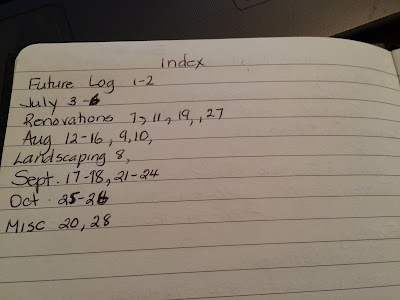 Index
Future Log 1-2
July 3-6
Renovations 7, 11, 19, , 27
Aug 12-16, 9, 10,
Landscaping 8,
Sept. 17-18, 21-24
Oct. 25-26
Misc 20, 28